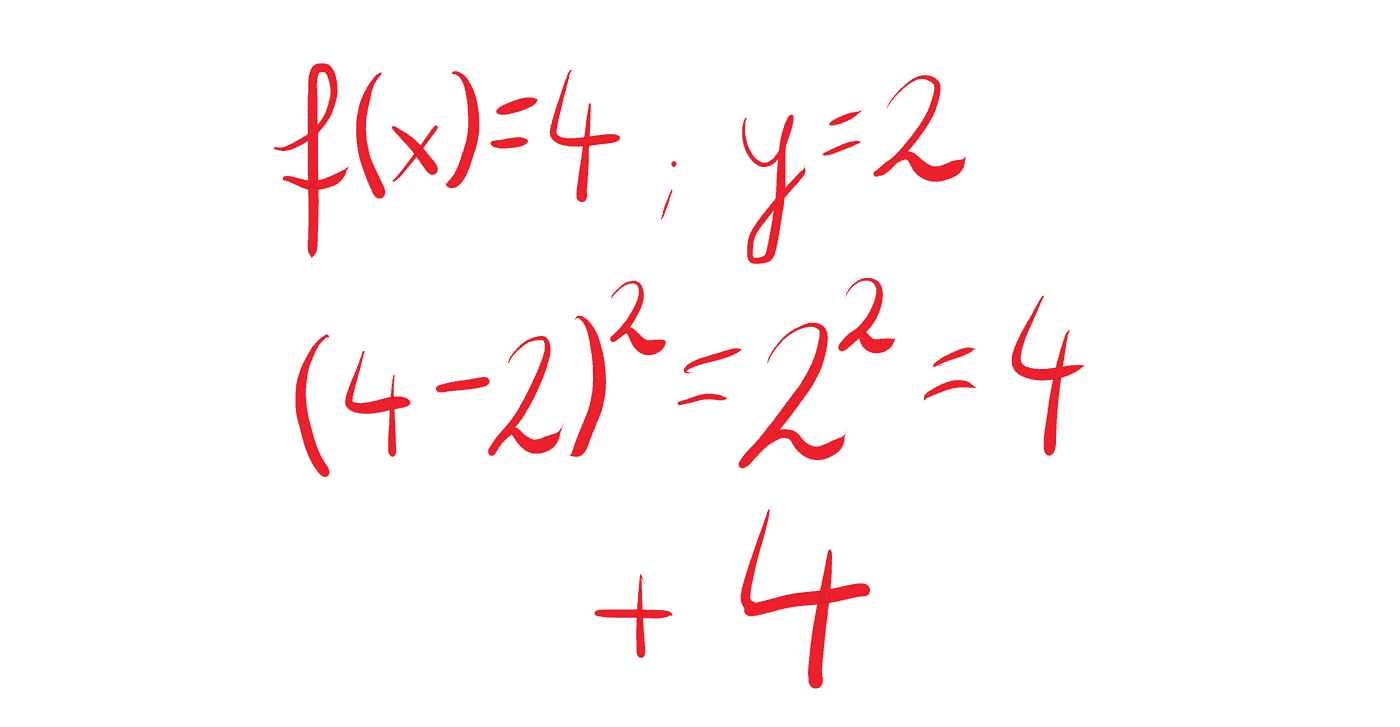 f(x)=4 ; y=2
(4-2)²=2²=4
+ 4